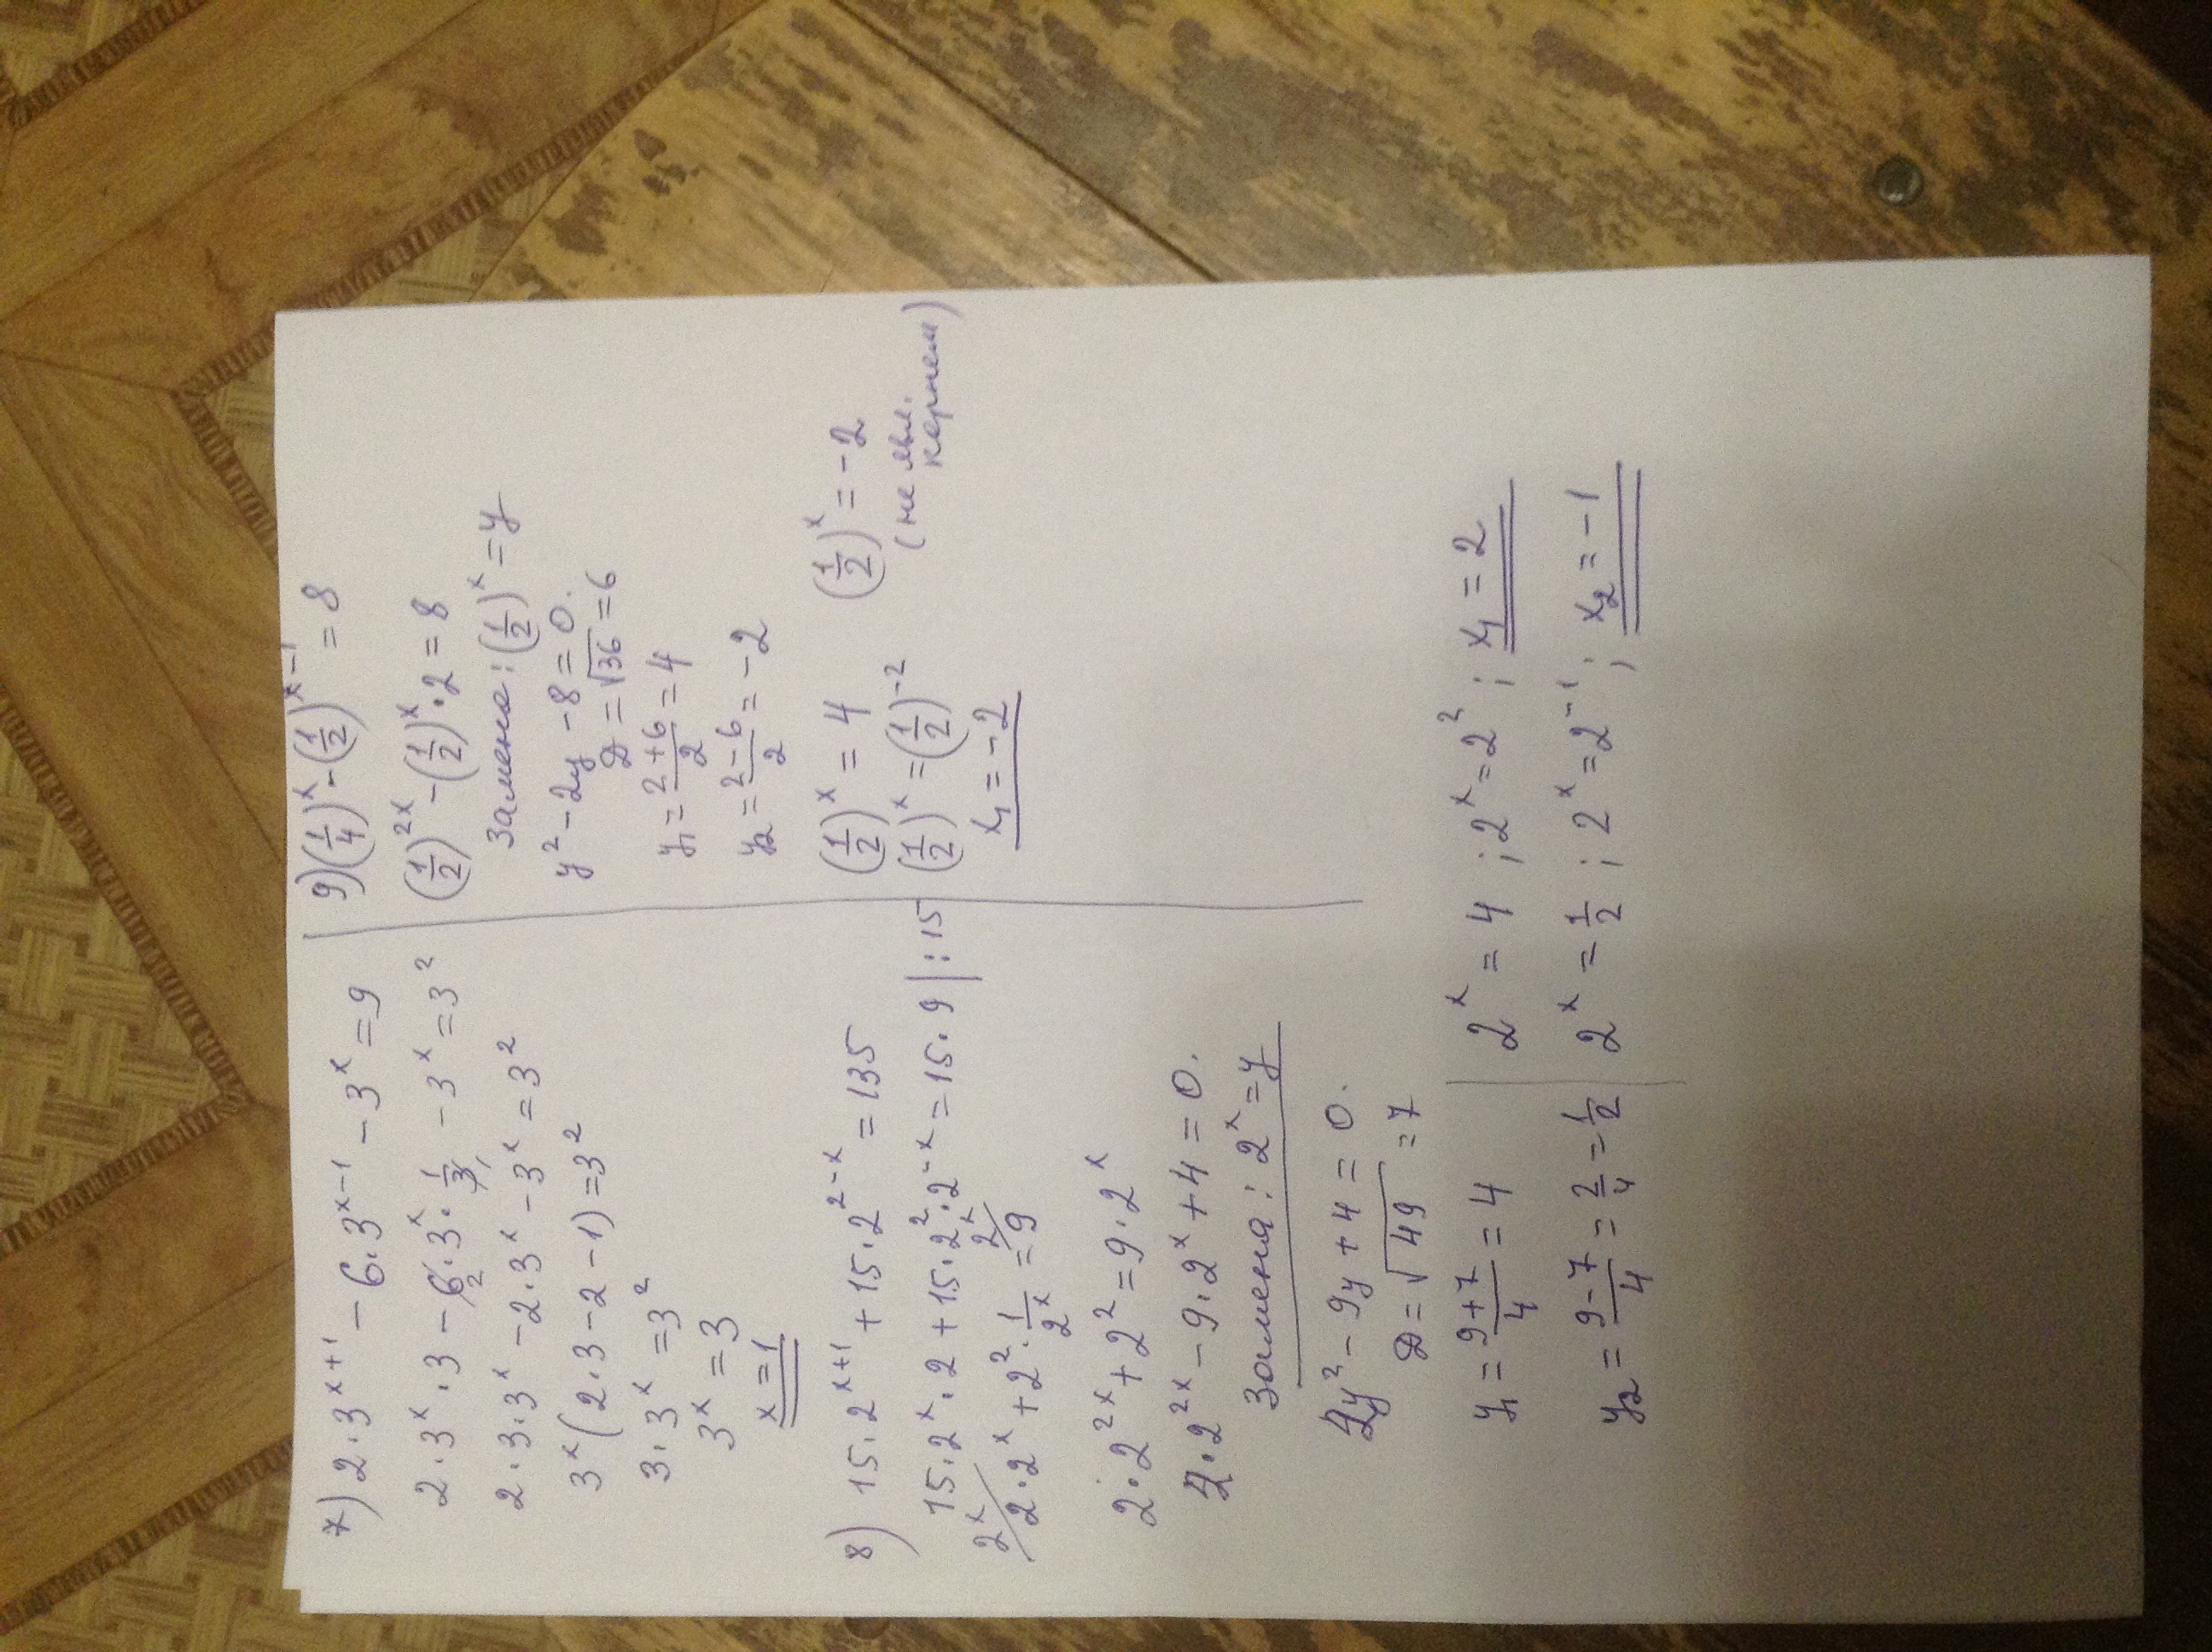 7) 2·3ˣ⁺¹ − 6·3ˣ⁻¹ − 3ˣ = 9
2·3ˣ·3 − 6·3ˣ·1/3 − 3ˣ = 3²
2
2·3·3ˣ − 2·3ˣ − 3ˣ = 3²
3ˣ(2·3 − 2 − 1) = 3²
3·3ˣ = 3²
3ˣ = 3
x = 1
8) 15·2ˣ⁺¹ + 15·2²⁻ˣ = 135
15·2ˣ·2 + 15·2²·2⁻ˣ = 15·9 | : 15
2ˣ/ 2·2ˣ + 2²·1/2ˣ = 2ˣ/ 9
2·2²ˣ + 2² = 9·2ˣ
2·2²ˣ − 9·2ˣ + 4 = 0.
Замена: 2ˣ = y
2y² − 9y + 4 = 0.
D = √49 = 7
y₁ = (9+7)/4 = 4 | 2ˣ = 4 ; 2ˣ = 2² ; x₁ = 2
y₂ = (9−7)/4 = 2/4 = 1/2 | 2ˣ = 1/2 ; 2ˣ = 2⁻¹ ; x₂ = −1
9) (1/4)ˣ − (1/2)ˣ⁻¹ = 8
(1/2)²ˣ − (1/2)ˣ·2 = 8
Замена: (1/2)ˣ = y
y² − 2y − 8 = 0.
D = √36 = 6
y₁ = (2+6)/2 = 4
y₂ = (2−6)/2 = −2
(1/2)ˣ = 4 (1/2)ˣ = −2
(1/2)ˣ = (1/2)⁻² (не явл.
корнем)
x₁ = −2